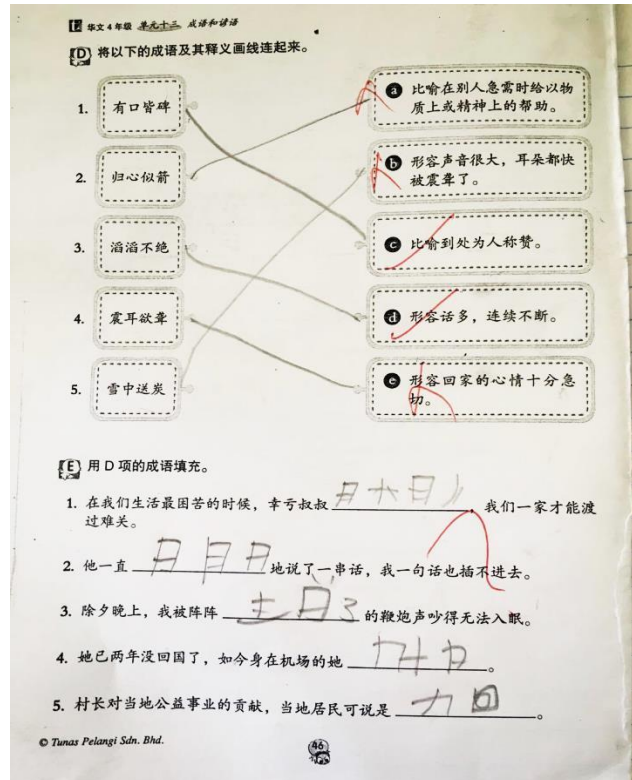 华文4年级 单元十三 成语和谚语
D 将以下的成语及其释义画线连起来。
1. 有口皆碑
a 比喻在别人急需时给以物
质上或精神上的帮助。
2. 归心似箭
b 形容声音很大，耳朵都快
被震聋了。
3. 滔滔不绝
c 比喻到处为人称赞。
4. 震耳欲聋
d 形容话多，连续不断。
5. 雪中送炭
e 形容回家的心情十分急
切。
E 用D项的成语填充。
1. 在我们生活最困苦的时候，幸亏叔叔，我们一家才能渡
过难关。
2. 他一直地说了一串话，我一句话也插不进去。
3. 除夕晚上，我被阵阵的鞭炮声吵得无法入眠。
4. 她已两年没回国了，如今身在机场的她。
5. 村长对当地公益事业的贡献，当地居民可说是。
© Tunas Pelangi Sdn. Bhd.
46